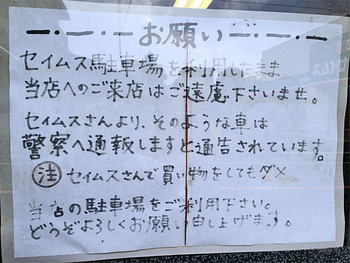 お願い
セイムス駐車場を利用したまま
当店へのご来店はご遠慮下さいませ。
セイムスさんより、そのような車は
警察へ通報しますと通告されています。
注 セイムスさんで買い物をしてもダメ
当店の駐車場をご利用下さい。
どうぞよろしくお願い申し上げます。